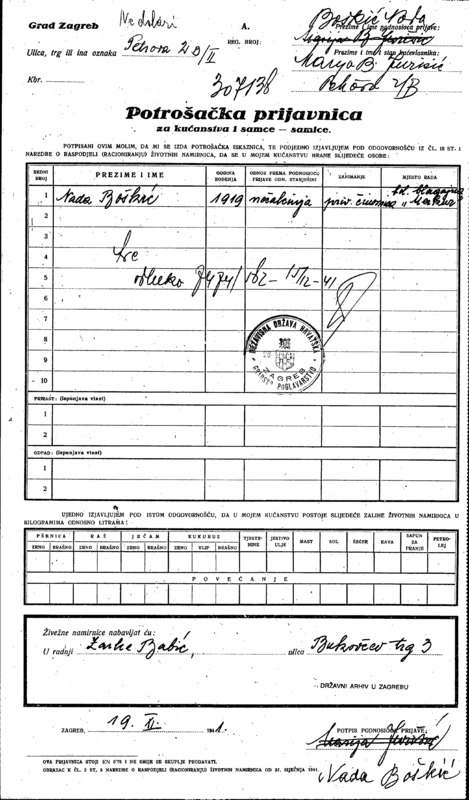 Grad Zagreb
A.
Boškić Nada
Ulica, trg ili ina oznaka Petrova 2 B/II
REG. BROJ:
Prezime i ime podnosioca prijave:
Prezime i ime i stan kućevlasnika:
Marija B. Jurišić
Kbr.
307138
Potrošačka prijavnica
za kućanstva i samce – samice.
POTPISANI OVIM MOLIM, DA MI SE IZDA POTROŠAČKA ISKAZNICA, TE PODJEDNO IZJAVLJUJEM POD ODGOVORNOŠĆU IZ ČL. 18 ST. 1
NAREDBE O RASPODJELI (RACIONIRANJU) ŽIVOTNIH NAMIRNICA, DA SE U MOJEM KUĆANSTVU HRANE SLIJEDEĆE OSOBE:
REDNI BROJ PREZIME I IME GODINA ROĐENJA ODNOS PREMA PODNOSIOCU PRIJAVE ODN. STARJEŠINI ZANIMANJE MJESTO RADA
1 Nada Boškić 1919 priv.
2
3
4
5 mlijeko
6
7
8
9
10
NEZAVISNA DRŽAVA HRVATSKA
ZAGREB
PRIRAST: (ispunjava vlast)
1
2
OTPAD: (ispunjava vlast)
1
2
UJEDNO IZJAVLJUJEM POD ISTOM ODGOVORNOŠĆU, DA U MOJEM KUĆANSTVU POSTOJE SLIJEDEĆE ZALIHE ŽIVOTNIH NAMIRNICA U
KILOGRAMIMA ODNOSNO LITRAMA:
PŠENICA RAŽ JEČAM KUKURUZ TJESTENINE JESTIVO ULJE MAST SOL ŠEĆER KAVA SAPUN ZA PRANJE PETROLEJ
ZRNO BRAŠNO ZRNO BRAŠNO ZRNO BRAŠNO ZRNO KLIP BRAŠNO
POVEĆANJE
Živežne namirnice nabavljat ću:
U radnji Žarke Babić, ulica Bukovčev trg 3
DRŽAVNI ARHIV U ZAGREBU
ZAGREB, 19. XI. 1941.
POTPIS PODNOSIOCA PRIJAVE:
Marija Jurišić
Nada Boškić
OVA PRIJAVNICA STOJI KN 0'75 I NE SMIJE SE SKUPLJE PRODAVATI.
OBRAZAC K ČL. 2 ST. 2 NAREDBE O RASPODJELI (RACIONIRANJU) ŽIVOTNIH NAMIRNICA OD 21. SIJEČNJA 1941.